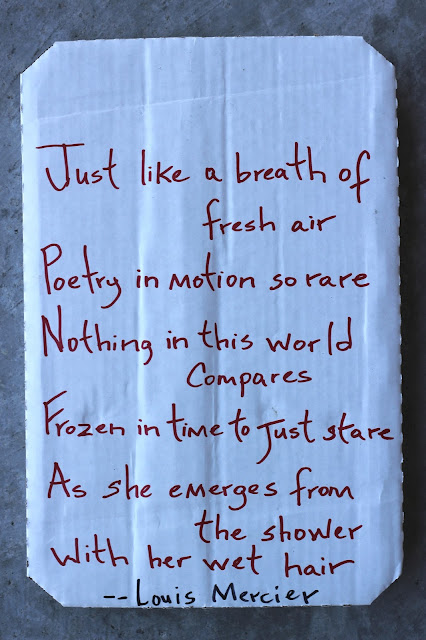 Just like a breath of
fresh air
Poetry in motion so rare
Nothing in this world
Compares
Frozen in time to Just stare
As she emerges from
the shower
With her wet hair
-- Louis Mercier